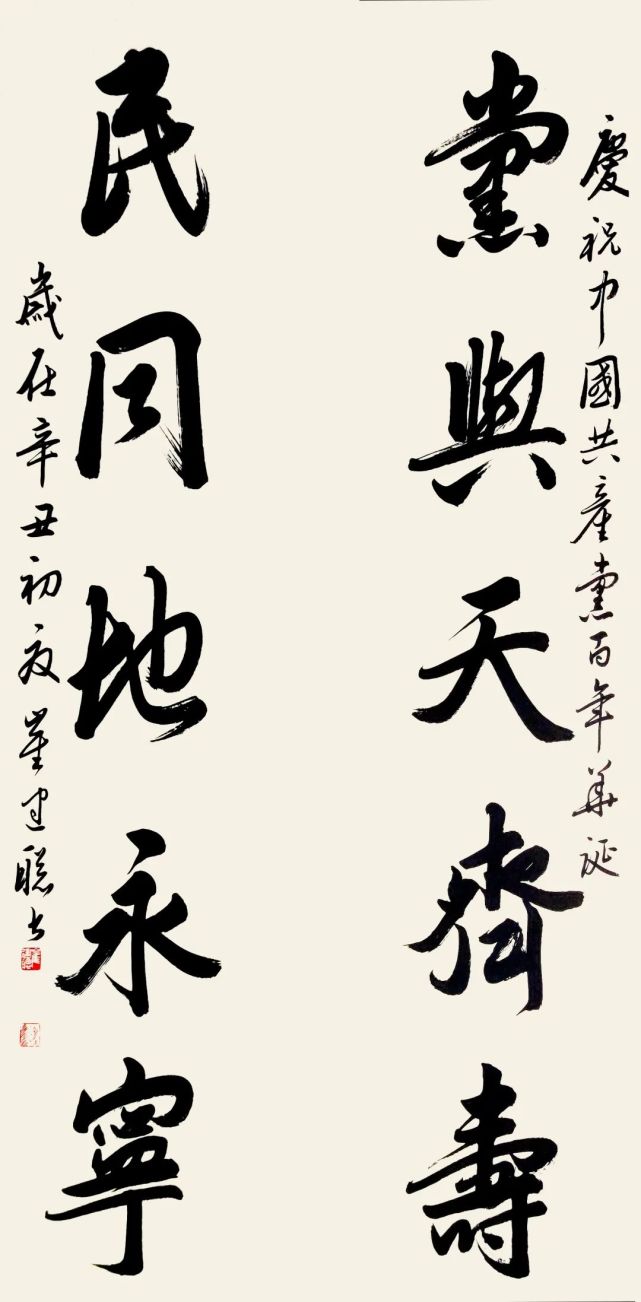 慶祝中國共產黨百年華誕
黨與天齊壽
民同地永寧
歲在辛丑初夏崔建聰書